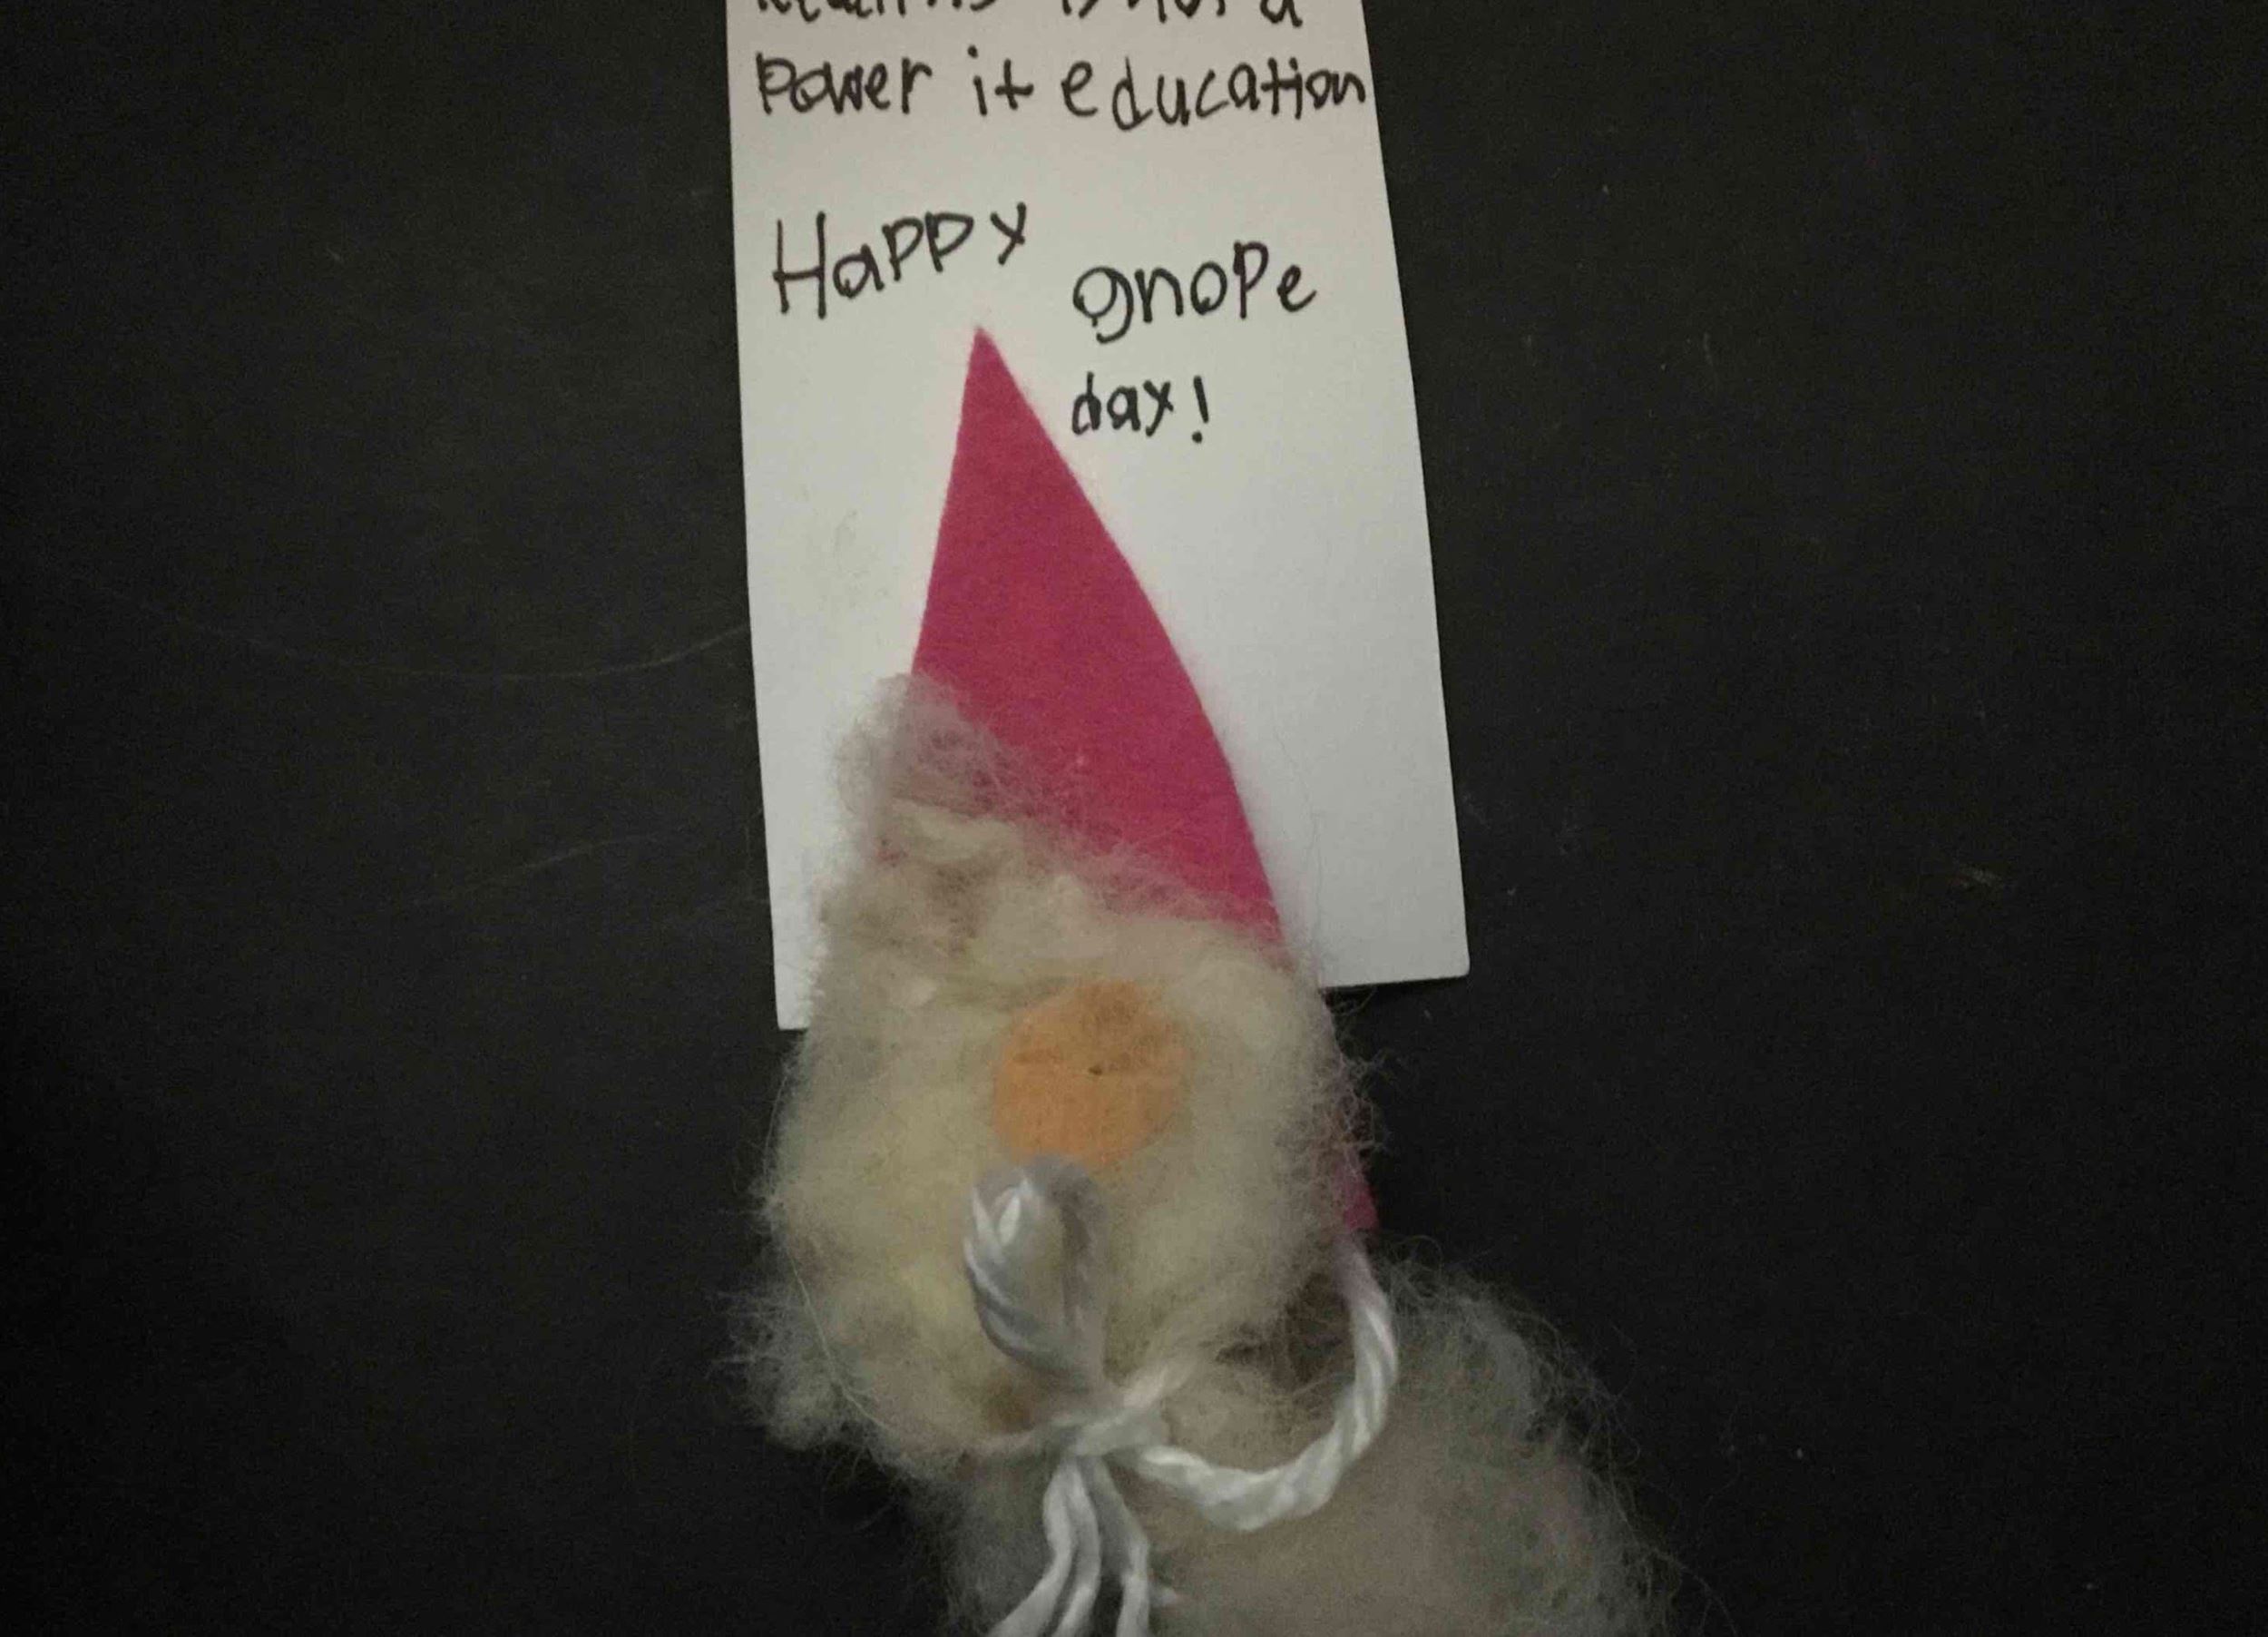 is not a
Power it education
Happy gnope
day!